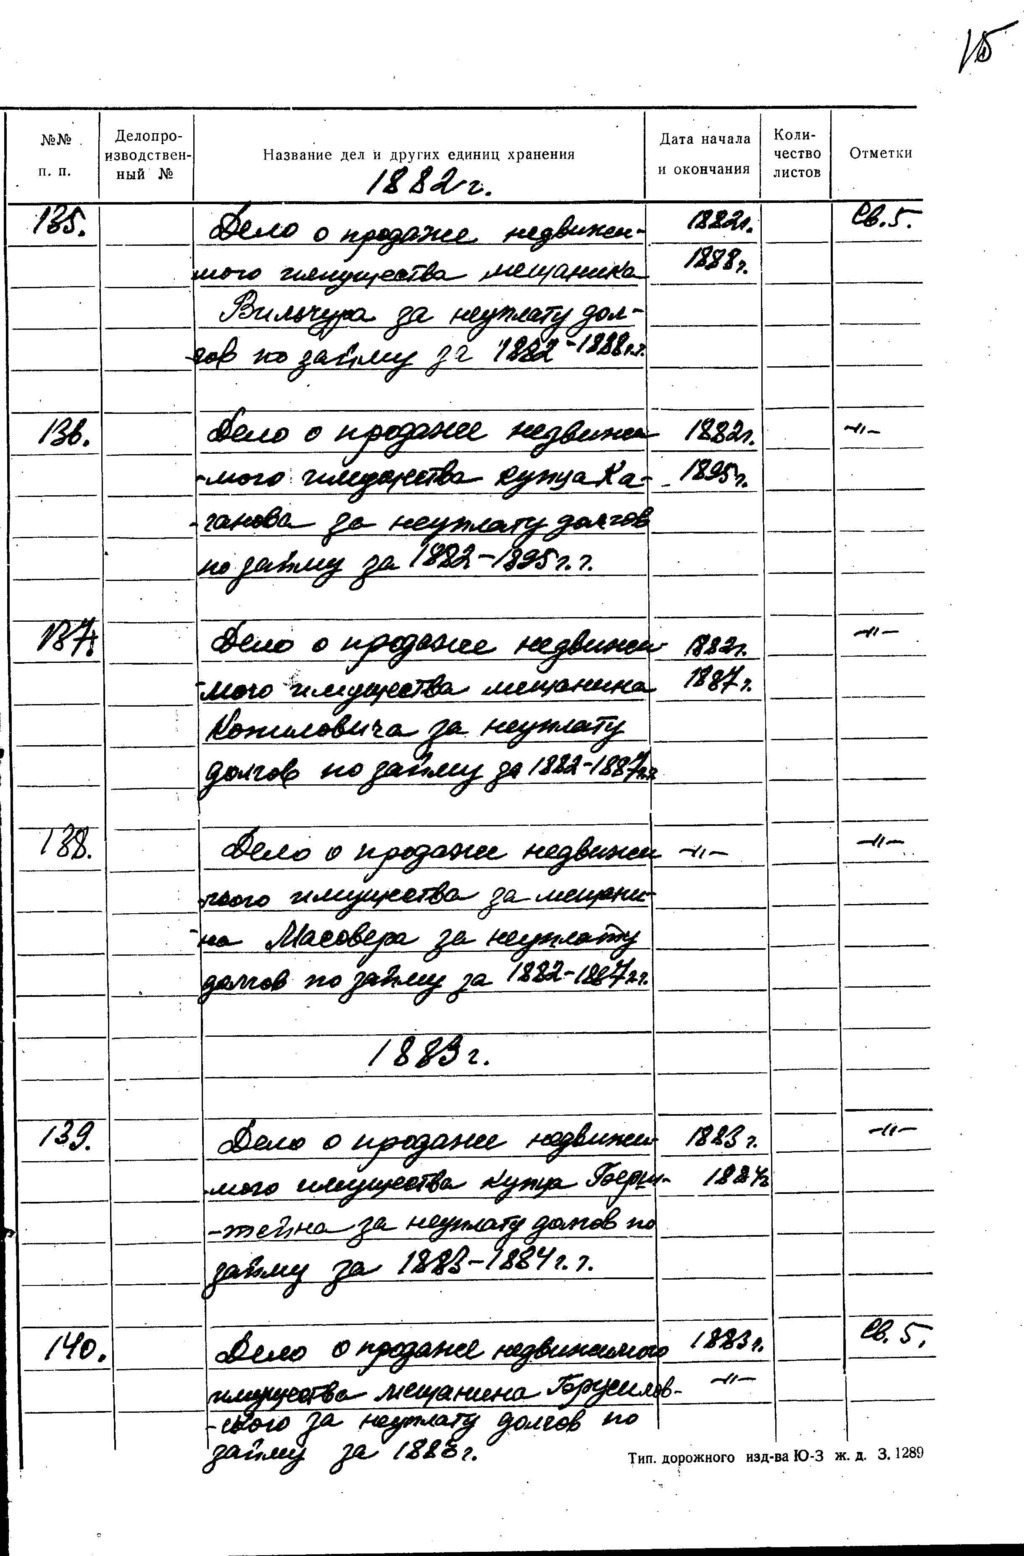 15
№№ п. п.
Делопроизводствен-ный №
Название дел и других единиц хранения
Дата начала и окончания
Коли-чество листов
Отметки
1882 г.
135. Дело о продаже недвижи- 1882г. Св. 5.
мого имущества мещанина 1888г.
Вильчура за неуплату дол-
гов по займу за 1882-1888г.г.
136. Дело о продаже недвижи 1882г. -"-
-мого имущества купца Ка- 1895г.
-ганова за неуплату долгов
по займу за 1882-1895г.г.
137. Дело о продаже недвижи 1882г. -"-
-мого имущества мещанина 1887г.
за неуплату
долгов по займу за 1882-1887г.г.
138. Дело о продаже недвижи -"- -"-
мого имущества за мещани-
-на Масовера за неуплату
долгов по займу за 1882-1887г.г.
1883 г.
139. Дело о продаже недвижи- 1883 г. -"-
-мого имущества купца 1884г
-тейна за неуплату долгов по
займу за 1883-1884г.г.
140. Дело о продаже недвижимого 1883г. Св. 5.
имущества мещанина -"-
-ского за неуплату долгов по
займу за 1883г.
Тип. дорожного изд-ва Ю-З ж. д. З. 1289